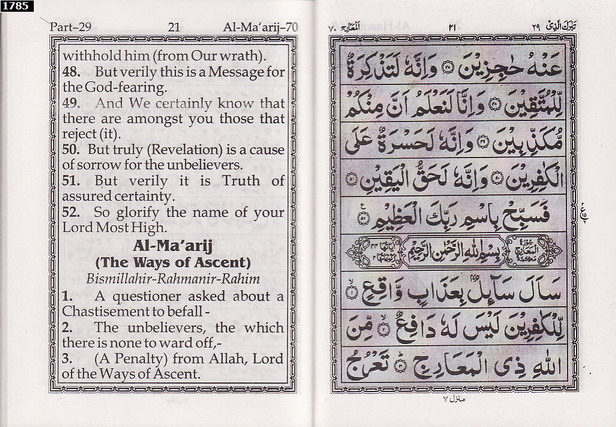 1785
Part–29 21 Al-Ma‘arij–70
withhold him (from Our wrath).
48. But verily this is a Message for
the God-fearing.
49. And We certainly know that
there are amongst you those that
reject (it).
50. But truly (Revelation) is a cause
of sorrow for the unbelievers.
51. But verily it is Truth of
assured certainty.
52. So glorify the name of your
Lord Most High.
Al-Ma‘arij
(The Ways of Ascent)
Bismillahir-Rahmanir-Rahim
1. A questioner asked about a
Chastisement to befall -
2. The unbelievers, the which
there is none to ward off,-
3. (A Penalty) from Allah, Lord
of the Ways of Ascent.
المعارج ۷۰ ۲۱ تبٰرک الذی ۲۹
عَنْهُ حٰجِزِيْنَ ۝ وَاِنَّهٗ لَتَذْكِرَةٌ
لِّلْمُتَّقِيْنَ ۝ وَاِنَّا لَنَعْلَمُ اَنَّ مِنْكُمْ
مُّكَذِّبِيْنَ ۝ وَاِنَّهٗ لَحَسْرَةٌ عَلَى
الْكٰفِرِيْنَ ۝ وَاِنَّهٗ لَحَقُّ الْيَقِيْنِ ۝
فَسَبِّحْ بِاسْمِ رَبِّكَ الْعَظِيْمِ ۝
بِسْمِ اللهِ الرَّحْمٰنِ الرَّحِيْمِ
سَاَلَ سَآئِلٌۢ بِعَذَابٍ وَّاقِعٍ ۝
لِّلْكٰفِرِيْنَ لَيْسَ لَهٗ دَافِعٌ ۝ مِّنَ
اللهِ ذِى الْمَعَارِجِ ۝ تَعْرُجُ
منزل ۷